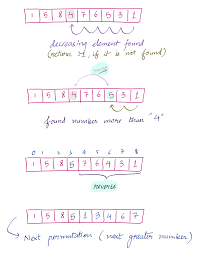 1 5 8 4 7 6 5 3 1
decreasing element found
(return -1, if it is not found)
1 5 8 4 7 6 5 3 1
found number more than "4"
0 1 2 3 4 5 6 7 8
1 5 8 5 7 6 4 3 1
reverse
1 5 8 5 1 3 4 6 7
Next permutation (next greater number)